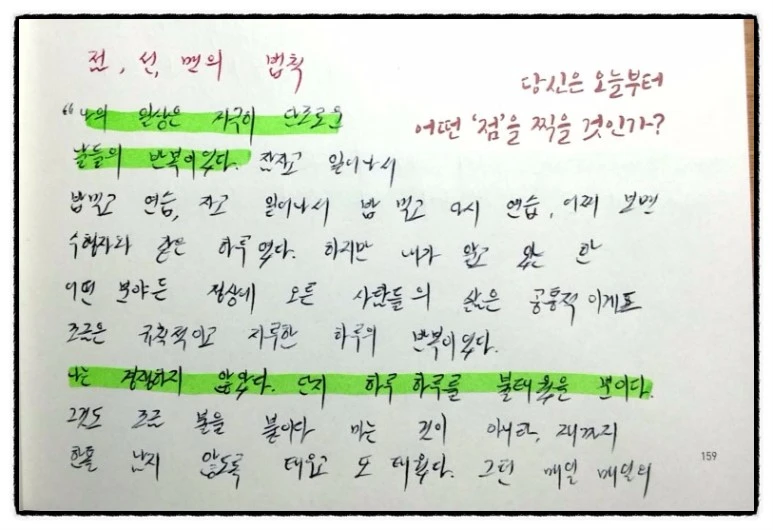 점, 선, 면의 법칙
당신은 오늘부터
어떤 '점'을 찍을 것인가?
“나의 일상은 지극히 단조로운
날들의 반복이었다. 잠자고 일어나서
밥먹고 연습, 자고 일어나서 밥 먹고 다시 연습, 어찌 보면
수험자와 같은 하루였다. 하지만 내가 알고 있는 한
어떤 분야든 정상에 오른 사람들의 삶은 공통적이게도
조금은 규칙적이고 지루한 하루의 반복이었다.
나는 경쟁하지 않았다. 단지 하루 하루를 불태웠을 뿐이다.
그것도 조금 불을 붙이다 마는 것이 아니라, 재까지
한톨 남지 않도록 태우고 또 태웠다. 그런 매일 매일의
159